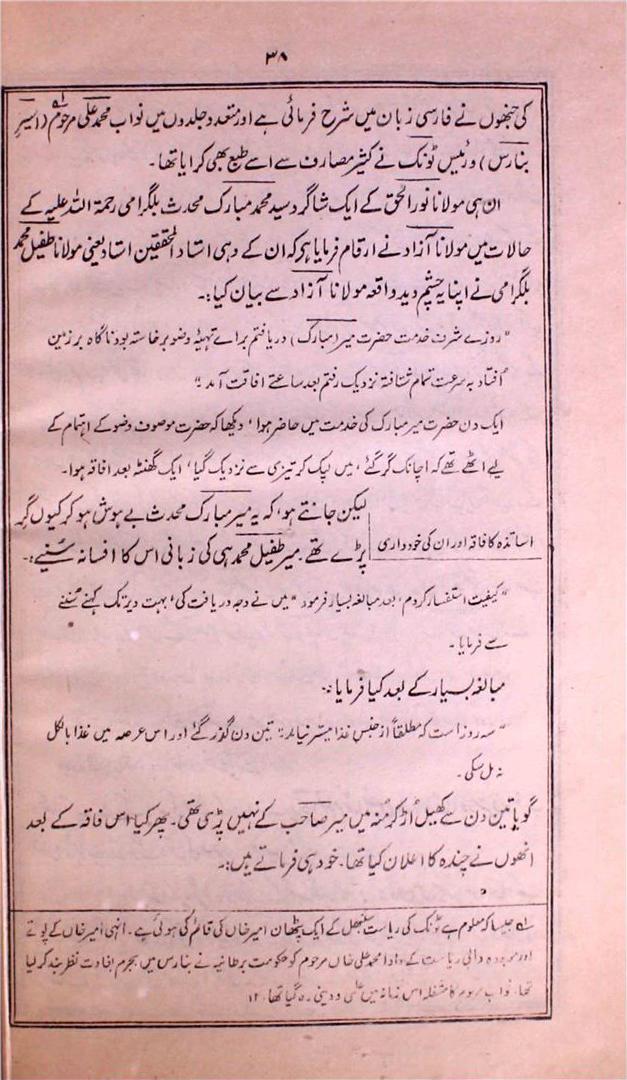 ۳۸
کی جنھوں نے فارسی زبان میں شرح فرمائی ہے اور متعدد جلدوں میں نواب محمد علی مرحوم لہ (اسیر
بنارس) و رئیس ٹونک نے کثیر مصارف سے اسے طبع بھی کرایا تھا۔
ان ہی مولانا نور الحق کے ایک شاگرد سید محمد مبارک محدث بلگرامی رحمۃ اللہ علیہ کے
حالات میں مولانا آزاد نے ارقام فرمایا ہے کہ ان کے وہی استاد المحققین استاد یعنی مولانا طفیل محمد
بلگرامی نے اپنا یہ چشم دید واقعہ مولانا آزاد سے بیان کیا:۔
"روزے شرف خدمت حضرت میر (مبارک) دریافتم برائے تہیۂ وضو برخاستہ بود ناگاہ بر زمین
اُفتاد بہ سرعت تمام شتافتہ نزدیک رفتم بعد ساعتے افاقت آمد"
ایک دن حضرت میر مبارک کی خدمت میں حاضر ہوا، دیکھا کہ حضرت موصوف وضو کے اہتمام کے
لیے اٹھے تھے کہ اچانک گر گئے، میں لپک کر تیزی سے نزدیک گیا، ایک گھنٹہ بعد افاقہ ہوا۔
لیکن جانتے ہو، کہ یہ میر مبارک محدث بے ہوش ہو کر کیوں گر
اساتذہ کا فاقہ اور ان کی خودداری
پڑے تھے۔ میر طفیل محمد ہی کی زبانی اس کا افسانہ سُنیے:۔
"کیفیت استفسار کردم، بعد مبالغہ بسیار فرمود" میں نے وجہ دریافت کی، بہت دیر تک کہنے سُننے
سے فرمایا۔
مبالغہ بسیار کے بعد کیا فرمایا:۔
"سہ روز است کہ مطلقاً از جنس غذا میسر نیامد" تین دن گذر گئے اور اس عرصہ میں غذا بالکل
نہ مل سکی۔
گویا تین دن سے کھیل اُڑ کر مُنہ میں میر صاحب کے نہیں پڑی تھی۔ پھر کیا اس فاقہ کے بعد
انھوں نے چندہ کا اعلان کیا تھا۔ خود ہی فرماتے ہیں:۔
لہ جیسا کہ معلوم ہے ٹونک کی ریاست سنبھل کے ایک پٹھان امیر خاں کی قائم کی ہوئی ہے۔ انہی امیر خاں کے پوتے
اور موجودہ والی ریاست کے دادا محمد علی خاں مرحوم کو حکومت برطانیہ نے بنارس میں بجرم بغاوت نظر بند کر لیا
تھا۔ نواب مرحوم کا مشغلہ اس زمانہ میں علمی و دینی رہ گیا تھا۔ ۱۲